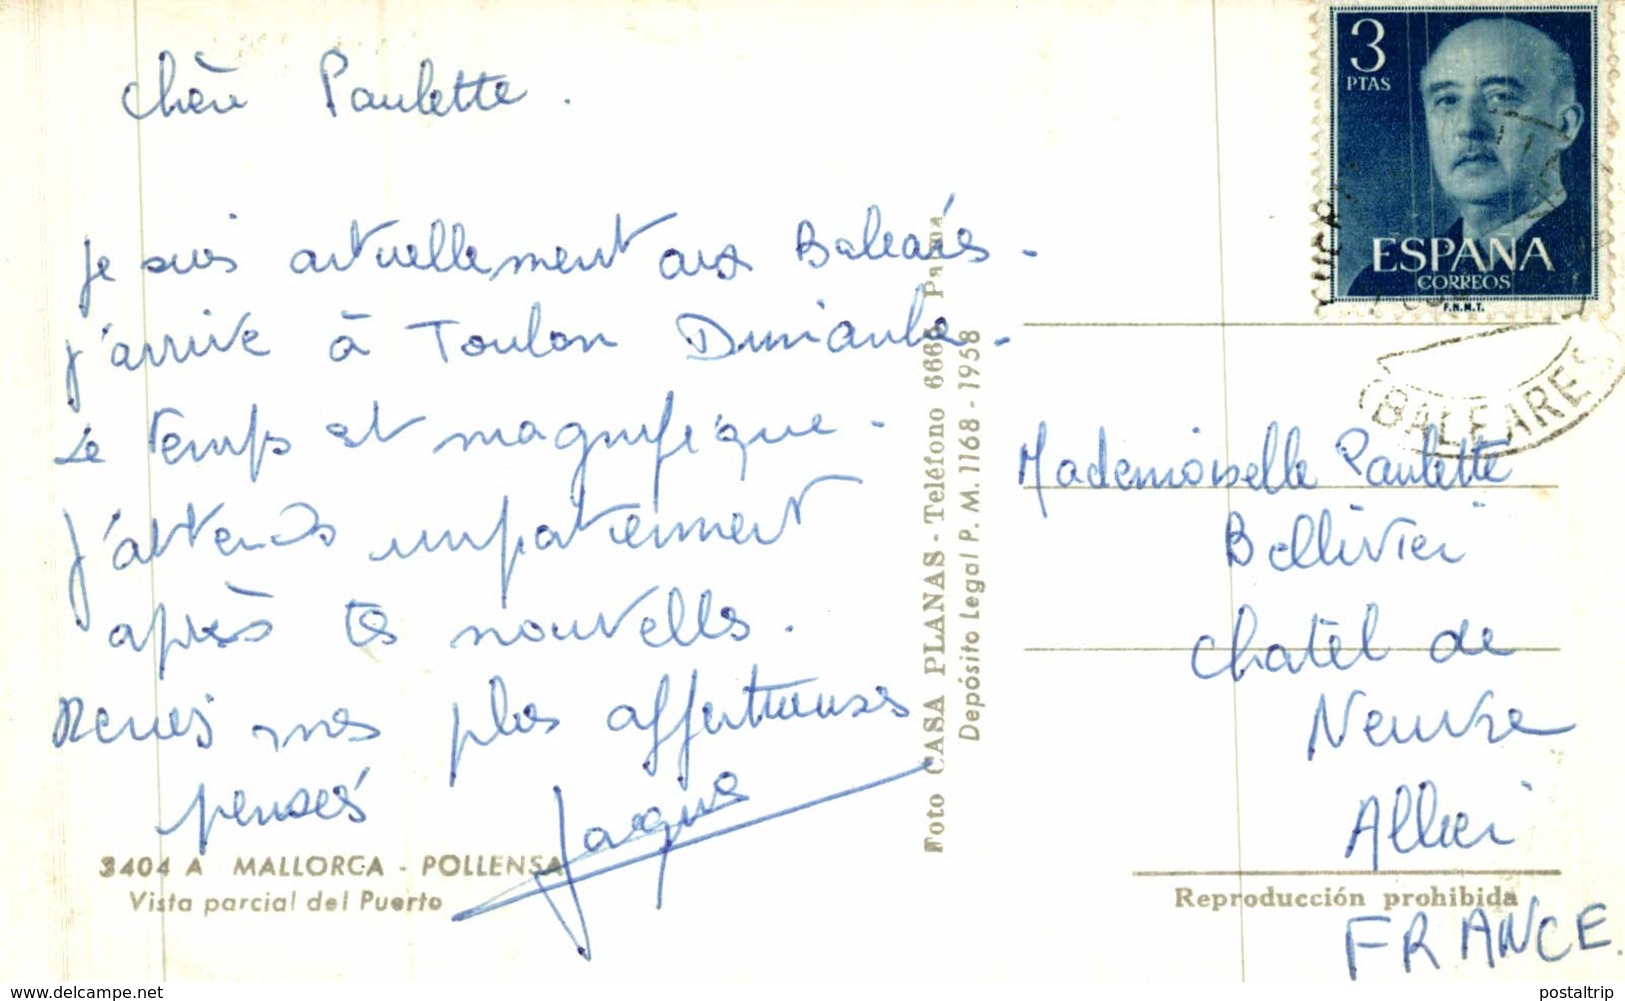 Chère Paulette.
Je suis actuellement aux Baleares.
J'arrive à Toulon Dimanche.
Le temps est magnifique.
J'attends impatiemment
après tes nouvelles.
Reçues mes plus affectueuses
pensés Jacques
3404 A MALLORCA - POLLENSA
Vista parcial del Puerto
Foto CASA PLANAS - Teléfono 6666 Palma
Depósito Legal P. M. 1168 - 1958
3
PTAS
ESPAÑA
CORREOS
F.N.M.T.
(BALEARES)
Mademoiselle Paulette
Bellivier
Chatel de
Neuvre
Allier
Reproducción prohibida
FRANCE.
www.delcampe.net
postaltrip